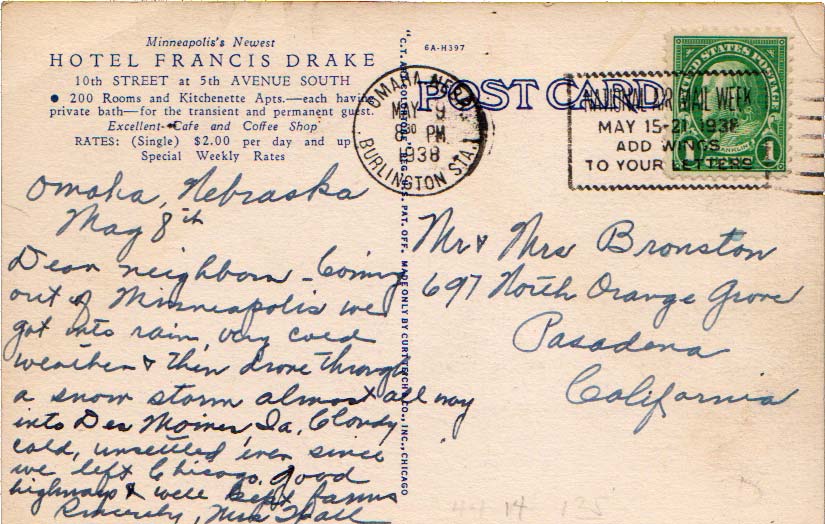 Minneapolis's Newest
HOTEL FRANCIS DRAKE
10th STREET at 5th AVENUE SOUTH
● 200 Rooms and Kitchenette Apts.—each havin
private bath—for the transient and permanent guest.
Excellent Cafe and Coffee Shop
RATES: (Single) $2.00 per day and up
Special Weekly Rates
Omaha, Nebraska
May 8th
Dear neighbors - Coming
out of Minneapolis we
got into rain, very cold
weather & then drove through
a snow storm almost all way
into Des Moines Ia. Cloudy
cold, unsettled ever since
we left Chicago. Good
highways & well kept farms
Sincerely, Mrs Hall
"C.T. ART-COLORTONE" REG. U.S. PAT. OFF. MADE ONLY BY CURT TEICH & CO., INC., CHICAGO
6A-H397
POST CARD
OMAHA, NEBR.
MAY 9
8 30 PM
1938
BURLINGTON STA.
NATIONAL AIR MAIL WEEK
MAY 15-21 1938
ADD WINGS
TO YOUR LETTERS
UNITED STATES POSTAGE
FRANKLIN
1
Mr & Mrs Bronston
697 North Orange Grove
Pasadena
California
14 135